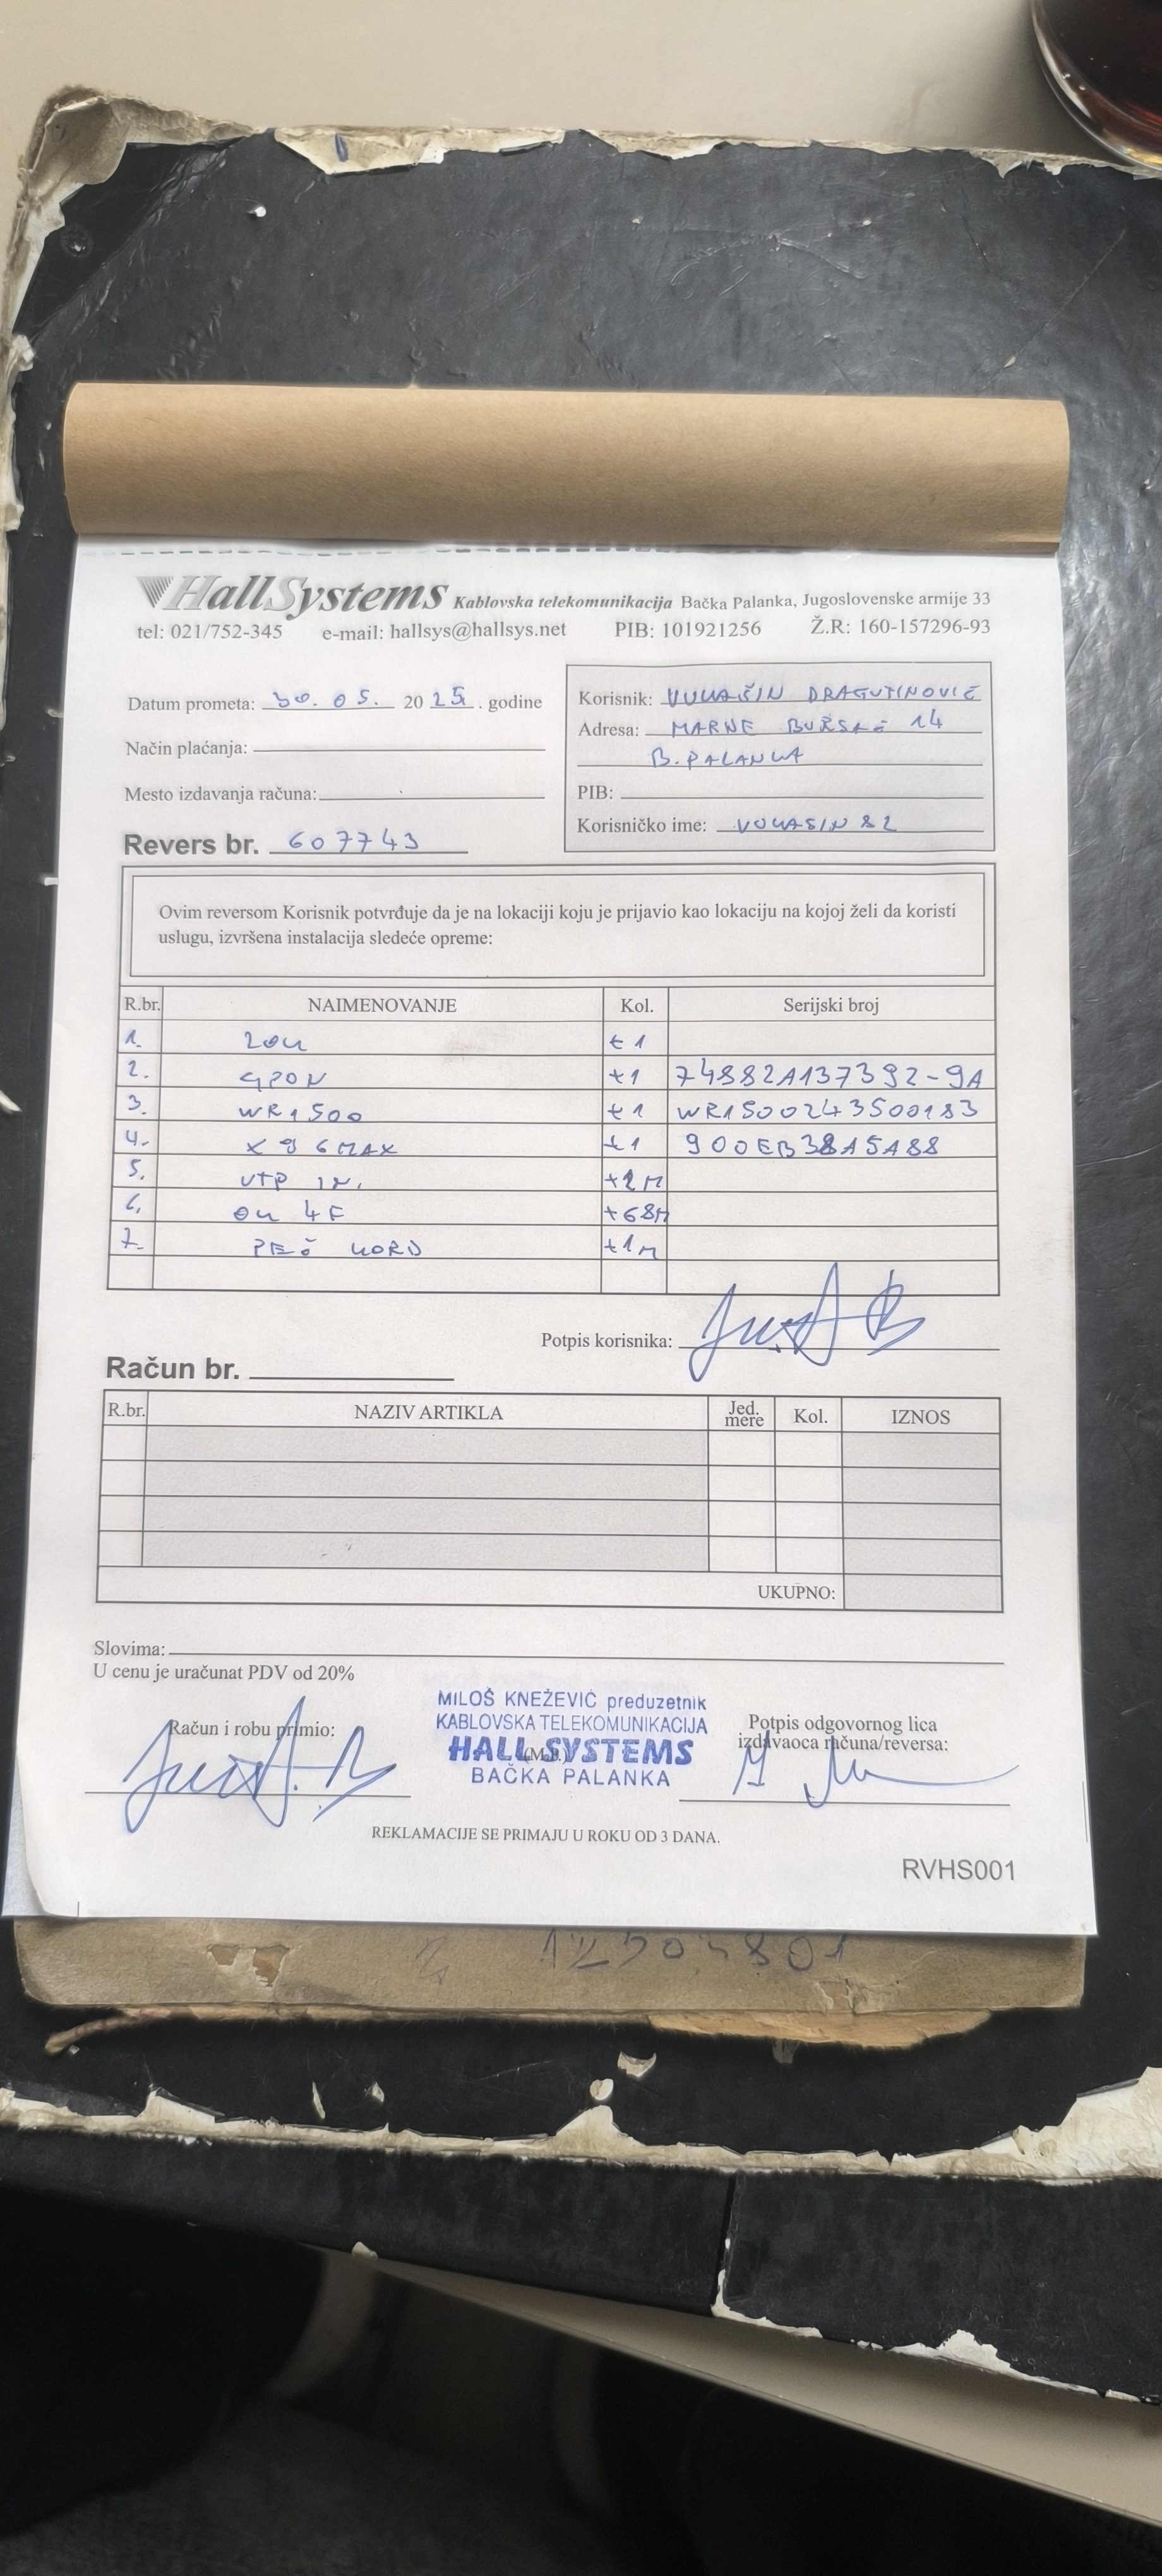 HallSystems Kablovska telekomunikacija Bačka Palanka, Jugoslovenske armije 33
tel: 021/752-345 e-mail: hallsys@hallsys.net PIB: 101921256 Ž.R: 160-157296-93
Datum prometa: 30. 05. 2025. godine
Način plaćanja:
Mesto izdavanja računa:
Revers br. 607743
Korisnik: VUKAŠIN DRAGUTINOVIĆ
Adresa: MARNE BURSAĆ 14
B. PALANKA
PIB:
Korisničko ime: VUKASIN 82
Ovim reversom Korisnik potvrđuje da je na lokaciji koju je prijavio kao lokaciju na kojoj želi da koristi
uslugu, izvršena instalacija sledeće opreme:
R.br. NAIMENOVANJE Kol. Serijski broj
1. ZOK +1
2. GPON +1 74882A137392-9A
3. WR1500 +1 WR1500243500183
4. X96MAX +1 900EB38A5A88
5. UTP +2M
6. OK 4F +68M
7. PEČ KORD +1M
Potpis korisnika:
Račun br.
R.br. NAZIV ARTIKLA Jed. mere Kol. IZNOS
UKUPNO:
Slovima:
U cenu je uračunat PDV od 20%
Račun i robu primio:
MILOŠ KNEŽEVIĆ preduzetnik
KABLOVSKA TELEKOMUNIKACIJA
HALL SYSTEMS
(M.P.)
BAČKA PALANKA
Potpis odgovornog lica
izdavaoca računa/reversa:
REKLAMACIJE SE PRIMAJU U ROKU OD 3 DANA.
RVHS001